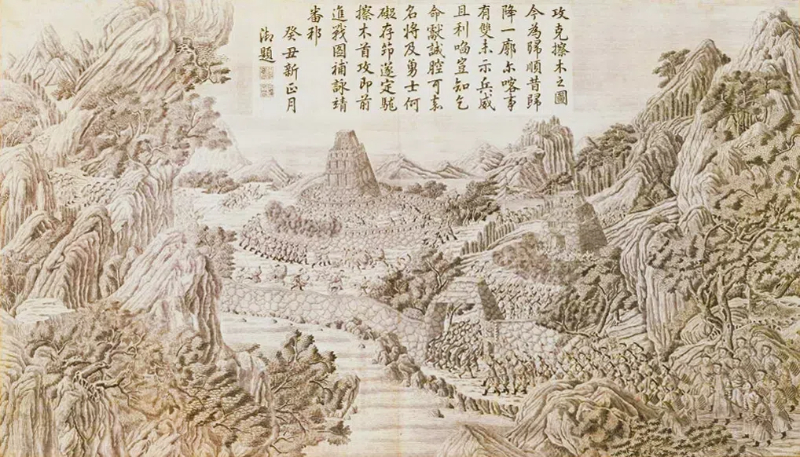 攻克擦木之圖
今為歸順昔歸
降一廓尓喀事
有雙未示兵威
且利啗豈知乞
命獻誠腔可
名将及勇士何
礙存遂定
擦木首攻即前
進戰圖補詠靖
番邦
癸丑新正月
御題